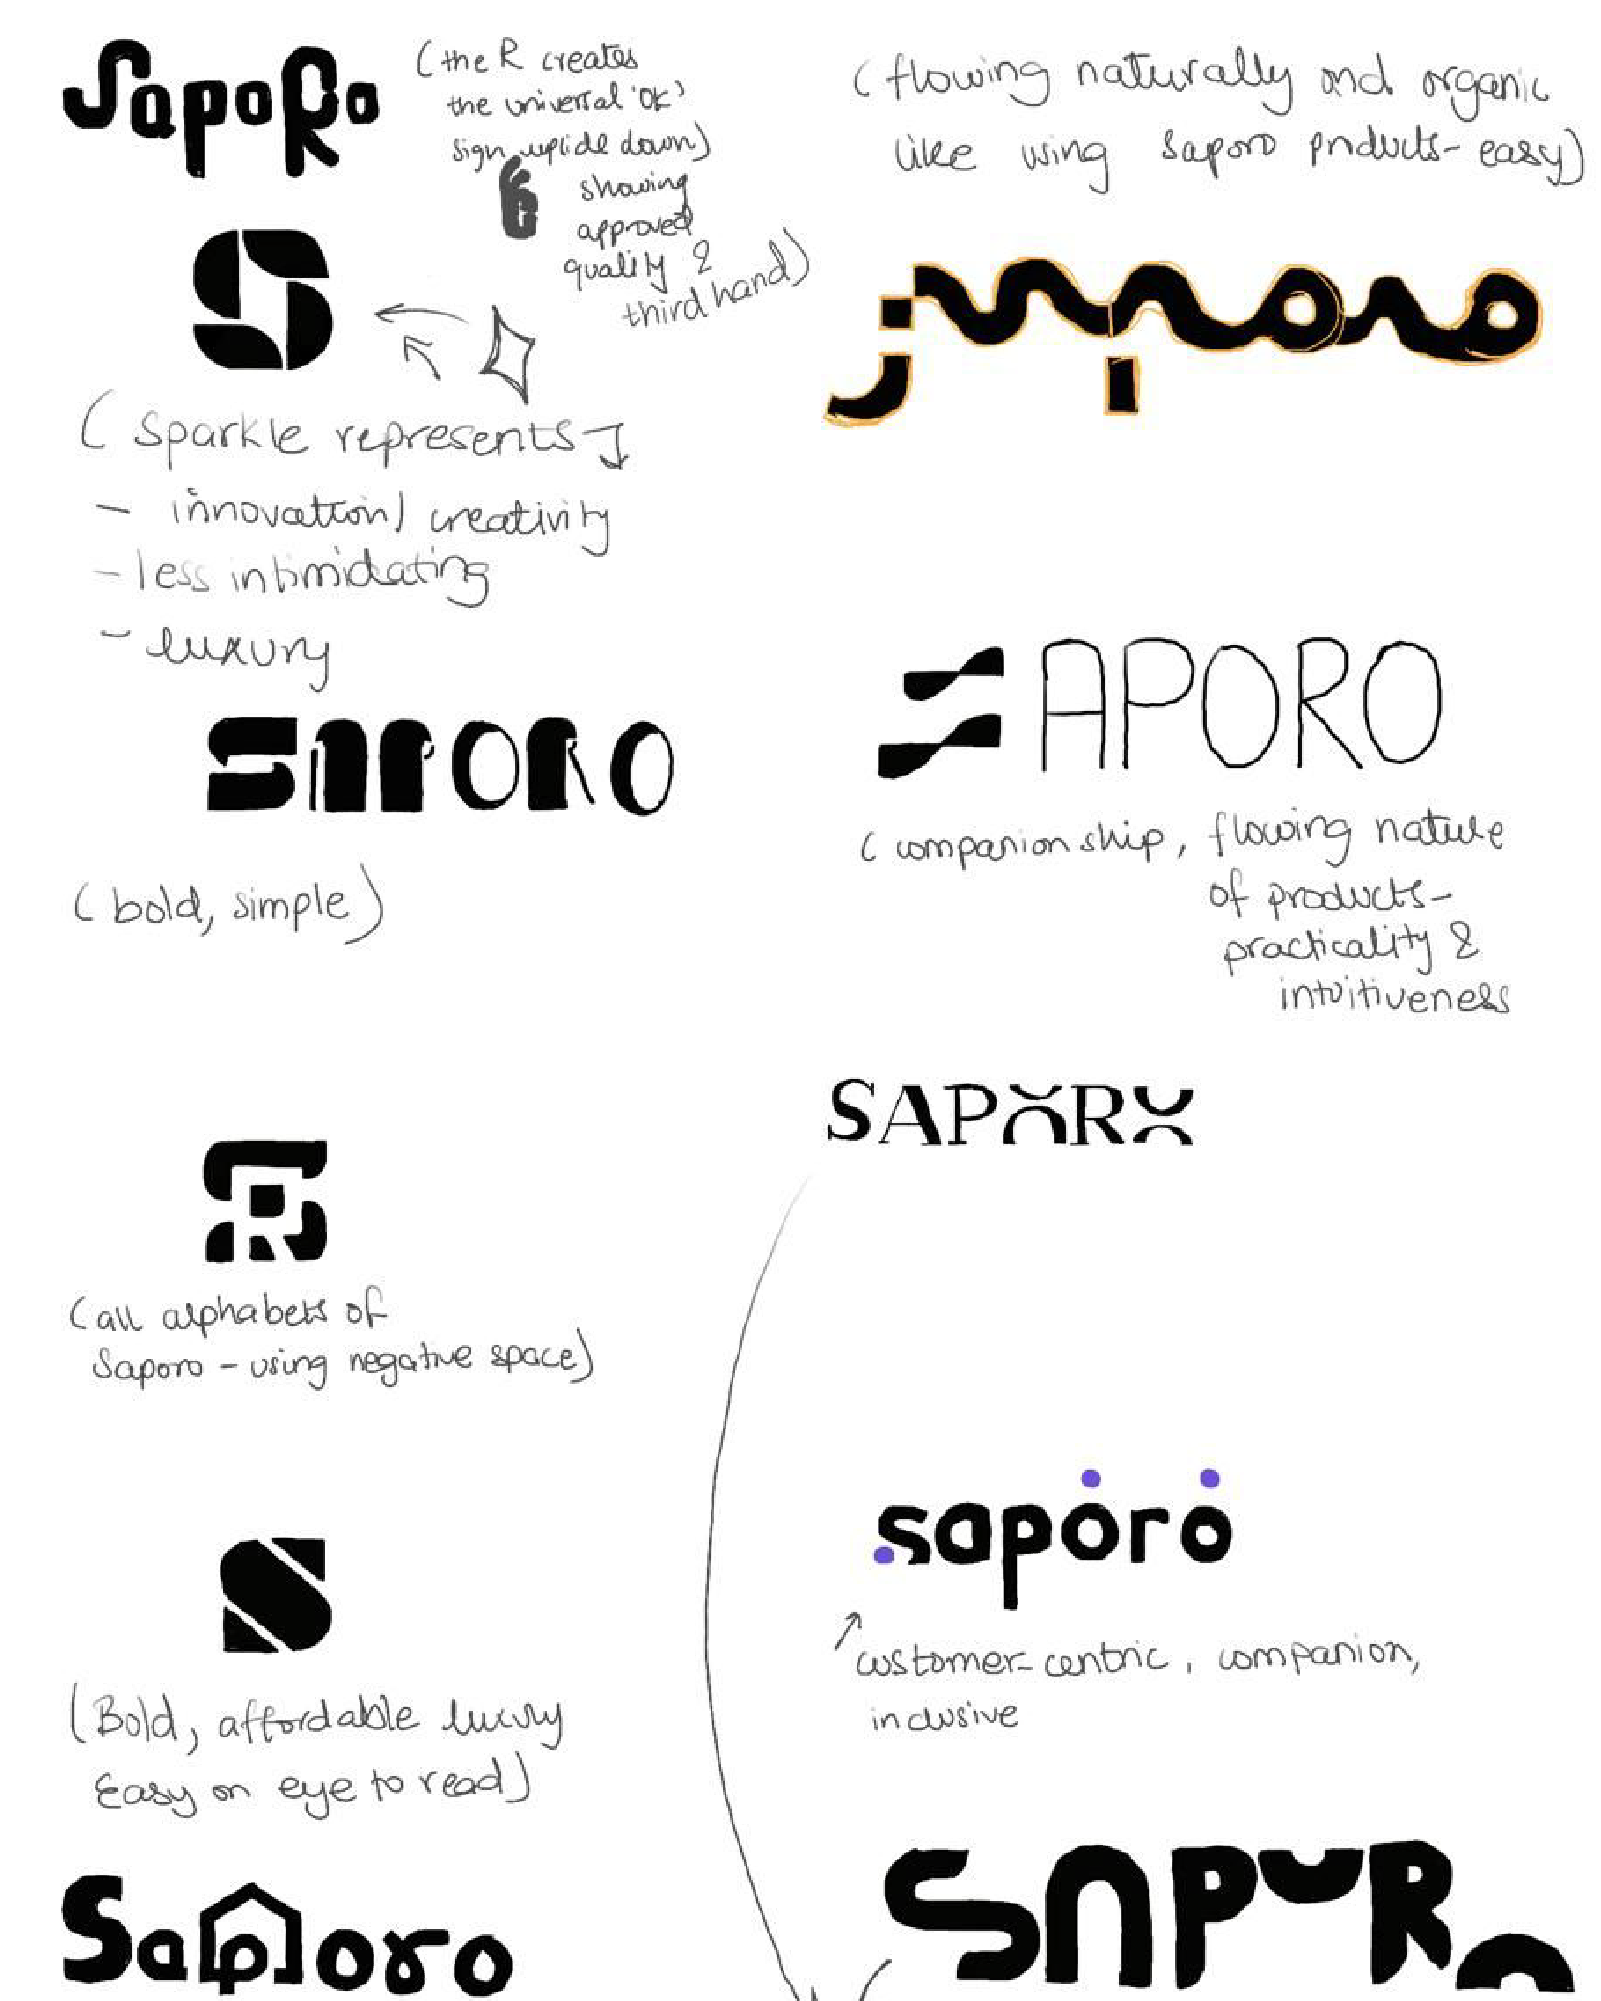 SapoRo
(the R creates
the universal 'OK'
sign upside down)
showing
approved
quality &
third hand)
S
(Sparkle represents
- innovation/ creativity
- less intimidating
- luxury
SAPORO
(bold, simple)
(all alphabets of
Saporo - using negative space)
S
(Bold, affordable luxury
Easy on eye to read)
Saporo
(flowing naturally and organic
like using Saporo products - easy)
saporo
SAPORO
(companionship, flowing nature
of products -
practicality &
intuitiveness
SAPORO
saporo
customer-centric, companion,
inclusive
SAPORO